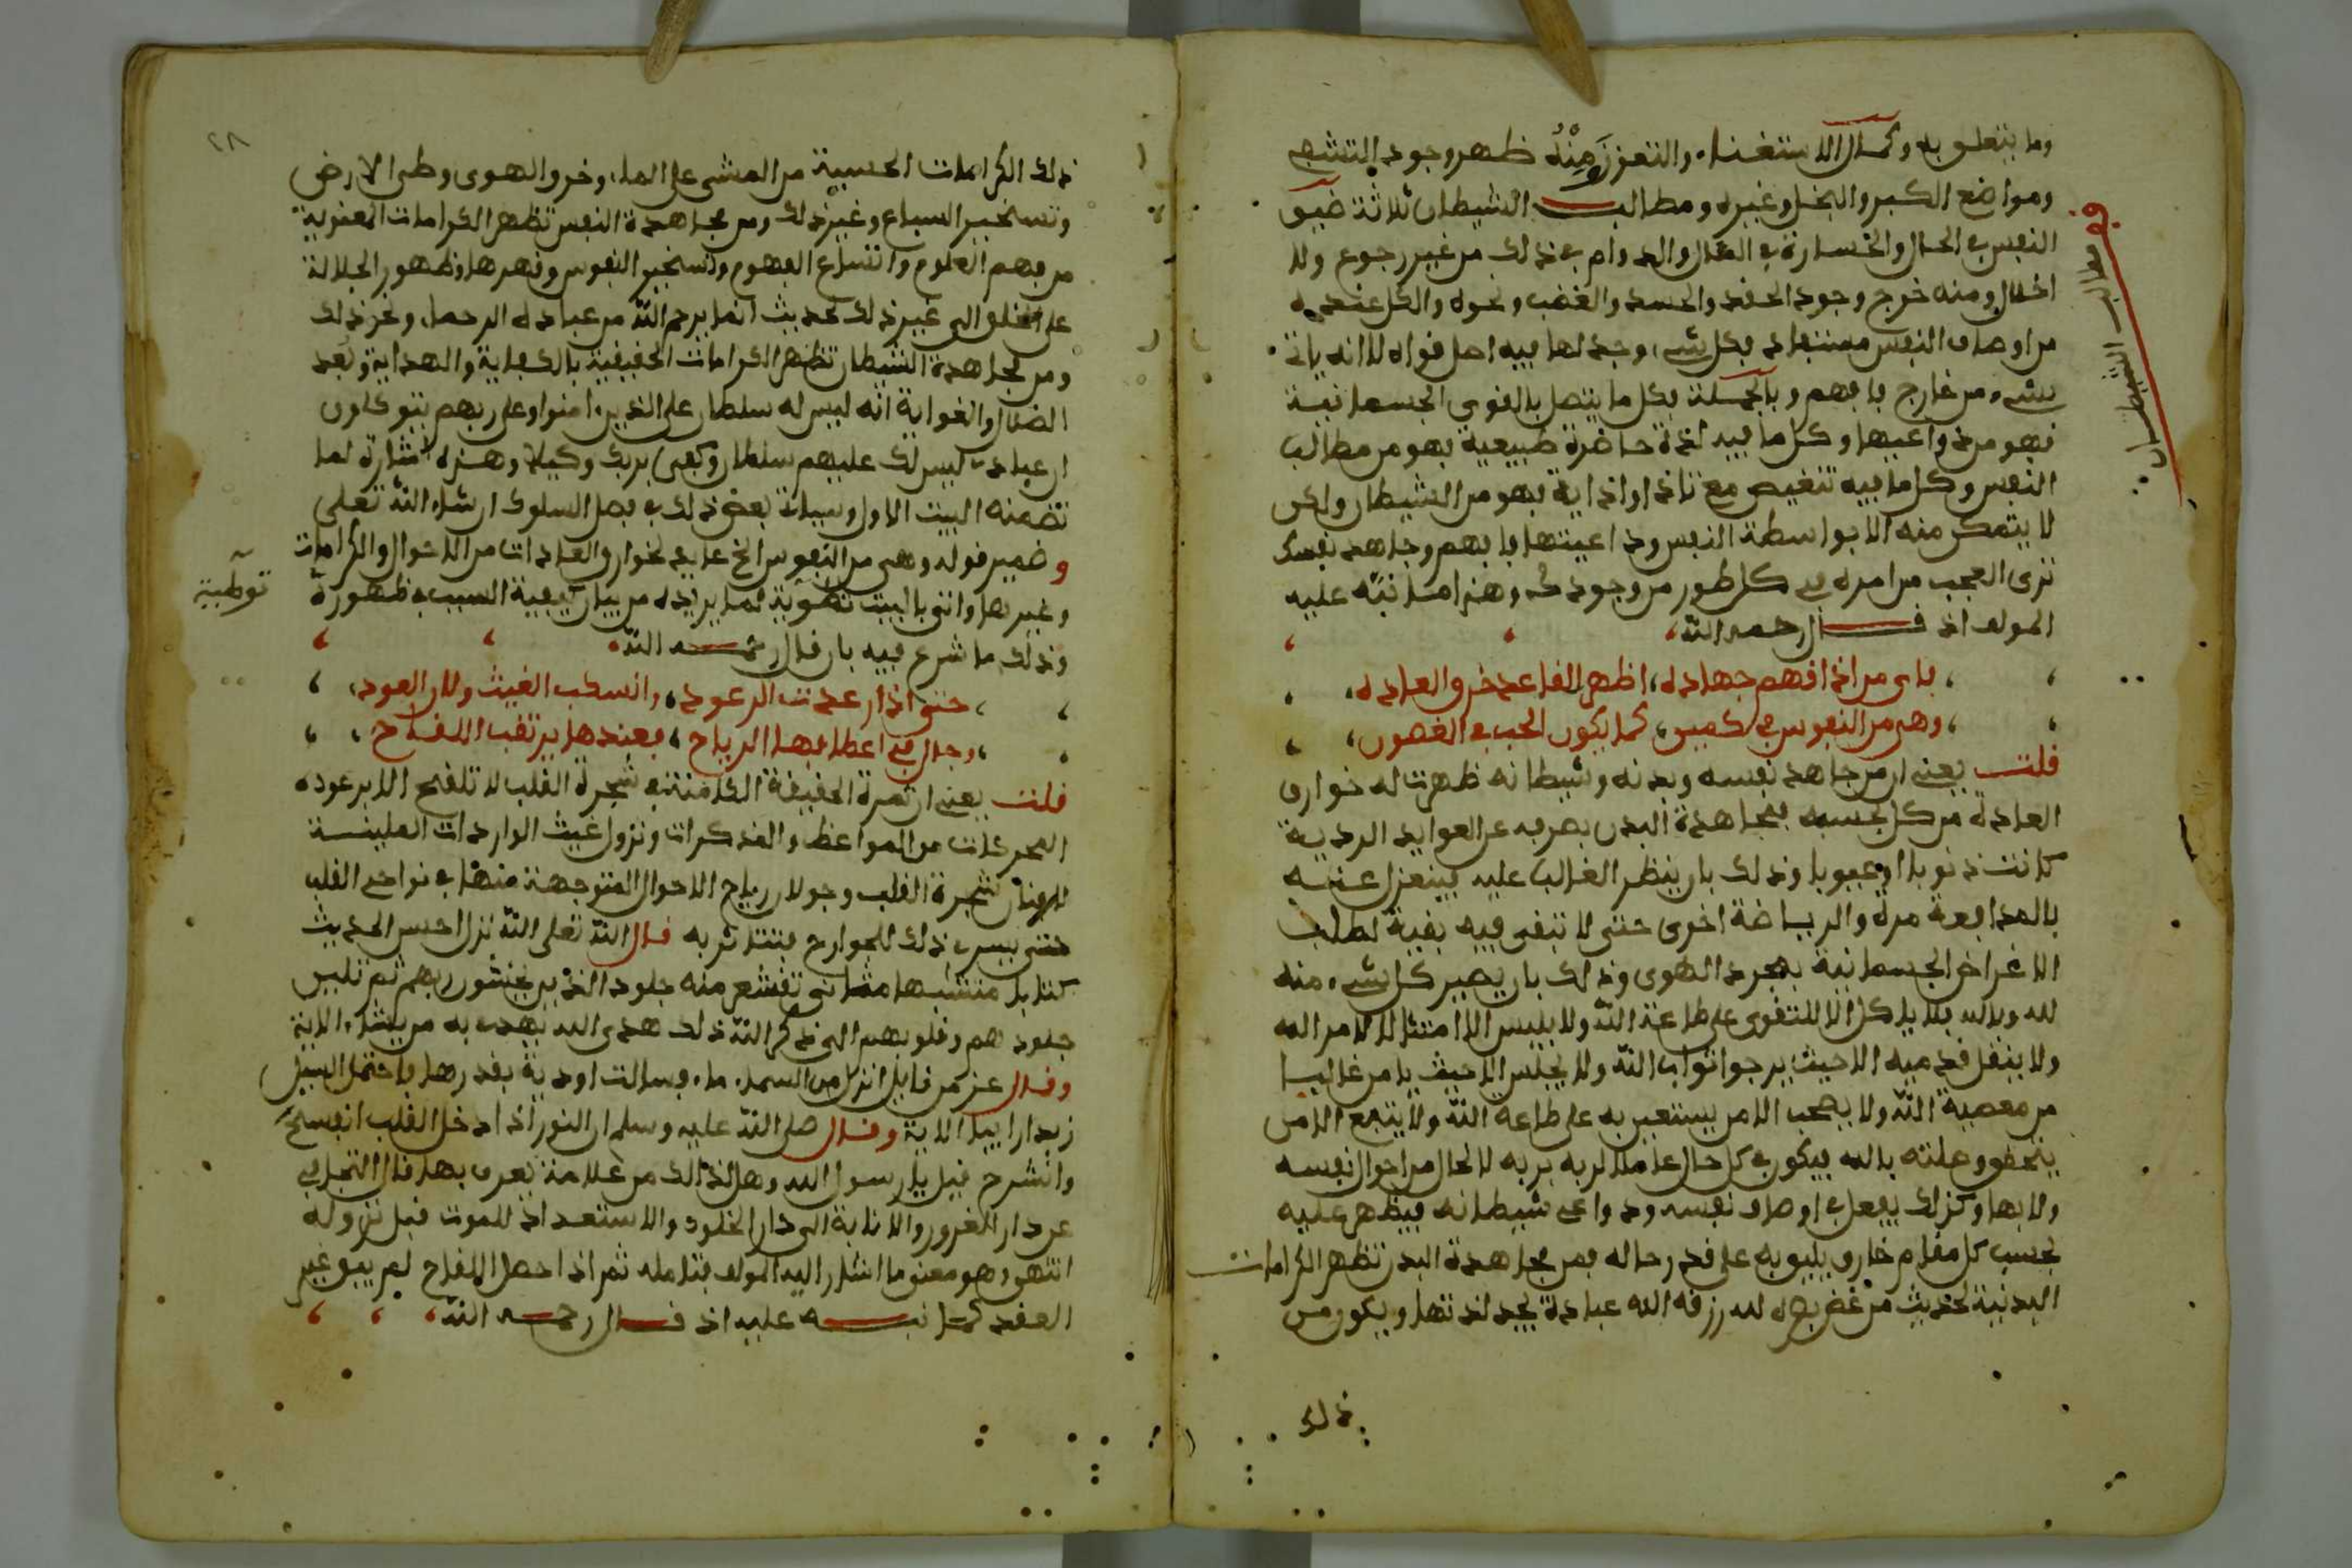 وما يتعلق به وكمال الاستغناء والتعزز ومنه ظهر وجود التشهي
ومواضع الكبر والبخل وغيره ومطالب الشيطان ثلاثة ضيق
النفس في الحال والخسارة في المال والدوام في ذلك من غير رجوع ولا
اخلال ومنه خرج وجود الحقد والحسد والغضب ونحوه والكل عنده
من اوصاف النفس مستفاد فكل شيء وجد لها فيه اصل قواه لا انه ياتي
بشيء من خارج فافهم وبالجملة فكل ما يتصل بالقوى الجسمانية
فهو من دواعيها وكل ما فيه لذة حاضرة طبيعية فهو من مطالب
النفس وكل ما فيه تنغيص مع تاذ او اذاية فهو من الشيطان ولكن
لا يتمكن منه الا بواسطة النفس وداعيتها فافهم وجاهد نفسك
ترى العجب من امره في كل طور من وجوده وهذا ما نبه عليه
المولف اذ قال رحمه الله
فاي من اذاقهم جهاده اظهر القاعد خرق العاده
وهي من النفوس في كمين كما يكون الحب في الغصون
قلت يعني ان من جاهد نفسه وبدنه وشيطانه ظهرت له خوارق
العادة من كل بحسبه فمجاهدة البدن بصرفه عن العوايد الردية
كانت ذنوبا او عيوبا وذلك بان ينظر الغالب عليه فينعزل عنه
بالمدافعة مرة والرياضة اخرى حتى لا تبقى فيه بقية لطلب
الاغراض الجسمانية بمجرد الهوى وذلك بان يصير كل شيء منه
لله وبالله فلا ياكل الا للتقوى على طاعة الله ولا يلبس الا امتثالا لامر الله
ولا ينقل قدميه الا حيث يرجوا ثواب الله ولا يجلس الا حيث يامن غالبا
من معصية الله ولا يصحب الا من يستعين به على طاعة الله ولا يتبع الا من
يتحقق وصلته بالله فيكون في كل حال عاملا لربه بربه لا لحال من احوال نفسه
ولا بها وكذلك يفعل في اوصاف نفسه ودواعي شيطانه فيظهر عليه
بحسب كل مقام خارق يليق به على قدر حاله فمن مجاهدة البدن تظهر الكرامات
البدنية لحديث من غض بصره لله رزقه الله عبادة يجد لذتها ويكون من
ذلك
في مطالب الشيطان
٢٨
ذلك الكرامات الحسية من المشي على الماء وخرق الهوى وطي الارض
وتسخير السباع وغير ذلك ومن مجاهدة النفس تظهر الكرامات المعنوية
من فهم العلوم واتساع الفهوم وتسخير النفوس وقهرها وظهور الجلالة
على الخلق الى غير ذلك لحديث انما يرحم الله من عباده الرحماء ونحو ذلك
ومن مجاهدة الشيطان تظهر الكرامات الحقيقية بالكفاية والهداية وبعد
الضلال والغواية انه ليس له سلطان على الذين امنوا وعلى ربهم يتوكلون
ان عبادي ليس لك عليهم سلطان وكفى بربك وكيلا وهذه اشارة لما
تضمنه البيت الاول وسياتي بعض ذلك في فصل السلوك ان شاء الله تعلى
وضمير قوله وهي من النفوس الخ عايد لخوارق العادات من الاحوال والكرامات
وغيرها واتى بالبيت توطية لما يريده من بيان كيفية السبب في ظهوره
توطية
وذلك ما شرع فيه بان قال رحمه الله
حتى اذا ارعدت الرعود وانسكب الغيث ولان العود
وجال في اغصانها الرياح فعندها يرتقب اللقاح
قلت يعني ان ثمرة الحقيقة الكامنة في شجرة القلب لا تلقح الا برعود
المحركات من المواعظ والمذكرات ونزول غيث الواردات الملينة
لاغصان شجرة القلب وجولان رياح الاحوال المتوجهة منها في نواحي القلب
حتى يسري ذلك للجوارح فتتاثر به قال الله تعلى الله نزل احسن الحديث
كتابا متشبها مثاني تقشعر منه جلود الذين يخشون ربهم ثم تلين
جلودهم وقلوبهم الى ذكر الله ذلك هدى الله يهدي به من يشاء الاية
وقال عز من قايل انزل من السماء ماء فسالت اودية بقدرها فاحتمل السيل
زبدا رابيا الاية وقال صلى الله عليه وسلم ان النور اذا دخل القلب انفسح
وانشرح قيل يا رسول الله وهل لذلك من علامة يعرف بها قال التجافي
عن دار الغرور والانابة الى دار الخلود والاستعداد للموت قبل نزوله
انتهى وهو معنى ما اشار اليه المولف فتامله ثم اذا حصل اللقاح لم يبق غير
العقد كما نبه عليه اذ قال رحمه الله